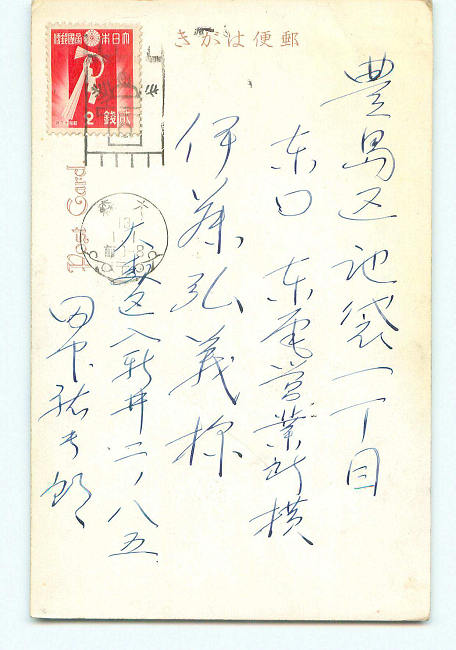 郵便はがき
大日本帝國郵便
2 貳錢
Post Card
豊島区池袋一丁目
东口 东電営業所横
伊藤弘義様
大森区入新井二ノ八五
田中